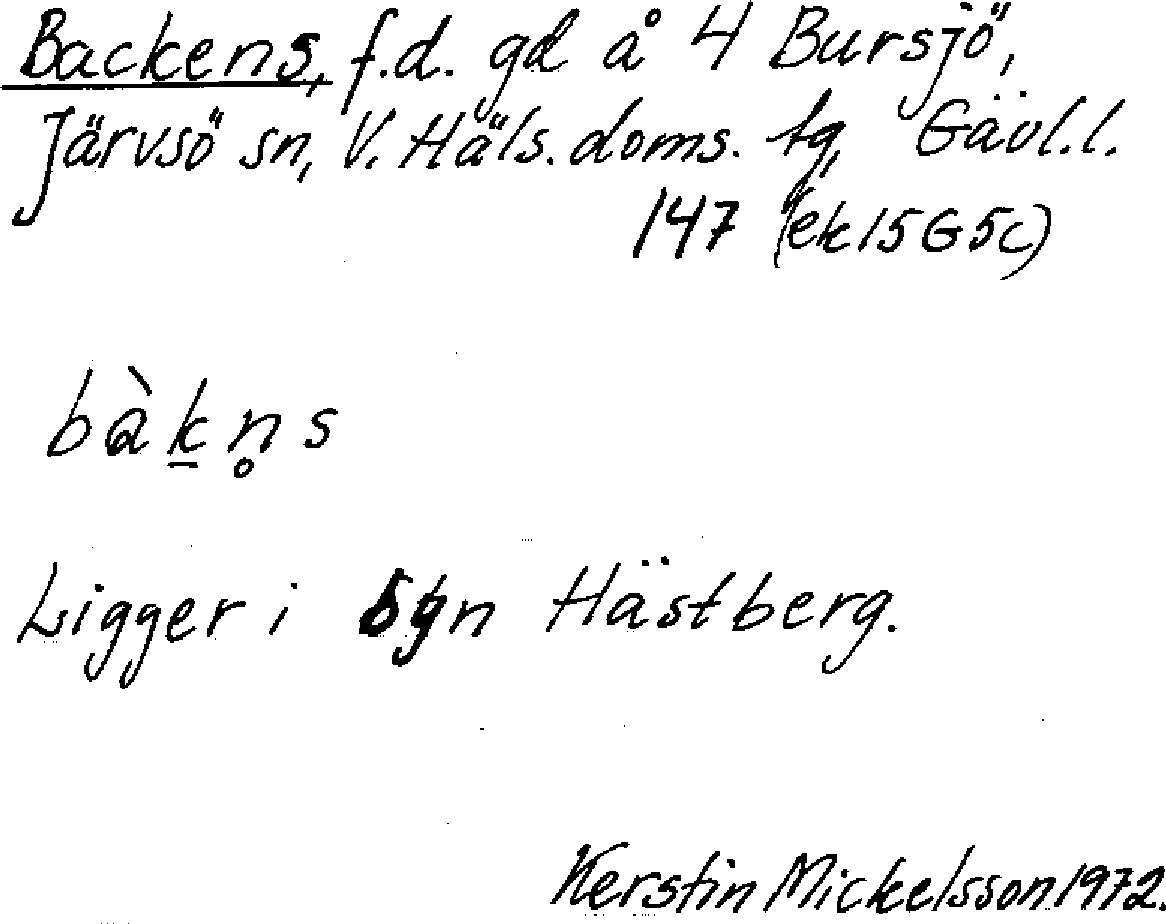 Backens, f.d. gd å 4 Bursjö,
Järvsö sn, V. Häls. doms. tg, Gävl. l.
147 (ek 15G5c)
bàk̲n̥s
Ligger i byn Hästberg.
Kerstin Mickelsson 1972.